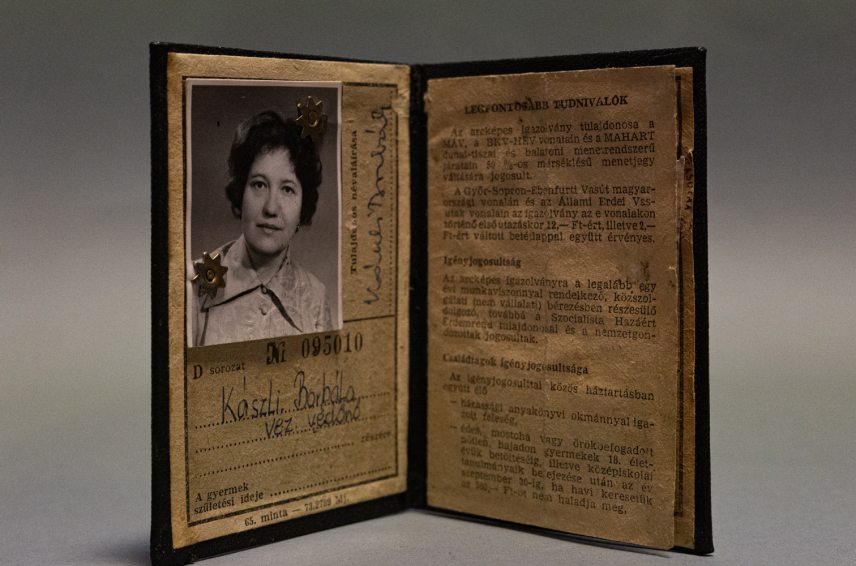 Tulajdonos névaláírása
Kászli Borbála
D sorozat № 095010
Kászli Borbála
vez. védőnő
részére
A gyermek
születési ideje
65. minta — 73.2799 MI.
LEGFONTOSABB TUDNIVALÓK
Az arcképes igazolvány tulajdonosa a
MÁV, a BKV-HÉV vonalain és a MAHART
dunai-tiszai és balatoni menetrendszerű
járatain 50 %-os mérséklésű menetjegy
váltására jogosult.
A Győr-Sopron-Ebenfurti Vasút magyar-
országi vonalán és az Állami Erdei Vas-
utak vonalain az igazolvány az e vonalakon
történő első utazáskor 12,— Ft-ért, illetve 2,—
Ft-ért váltott betétlappal együtt érvényes.
Igényjogosultság
Az arcképes igazolványra a legalább egy
évi munkaviszonnyal rendelkező, közszol-
gálati (nem vállalati) bérezésben részesülő
dolgozó, továbbá a Szocialista Hazáért
Érdemrend tulajdonosai és a nemzetgon-
dozottak jogosultak.
Családtagok igényjogosultsága
Az igényjogosulttal közös háztartásban
együtt élő
— házassági anyakönyvi okmánnyal iga-
zolt feleség,
— édes, mostoha vagy örökbefogadott
nőtlen, hajadon gyermekek 18. élet-
évük betöltéséig, illetve középiskolai
tanulmányaik befejezése után az év
szeptember 30-ig, ha havi keresetük
az 500,— Ft-ot nem haladja meg,